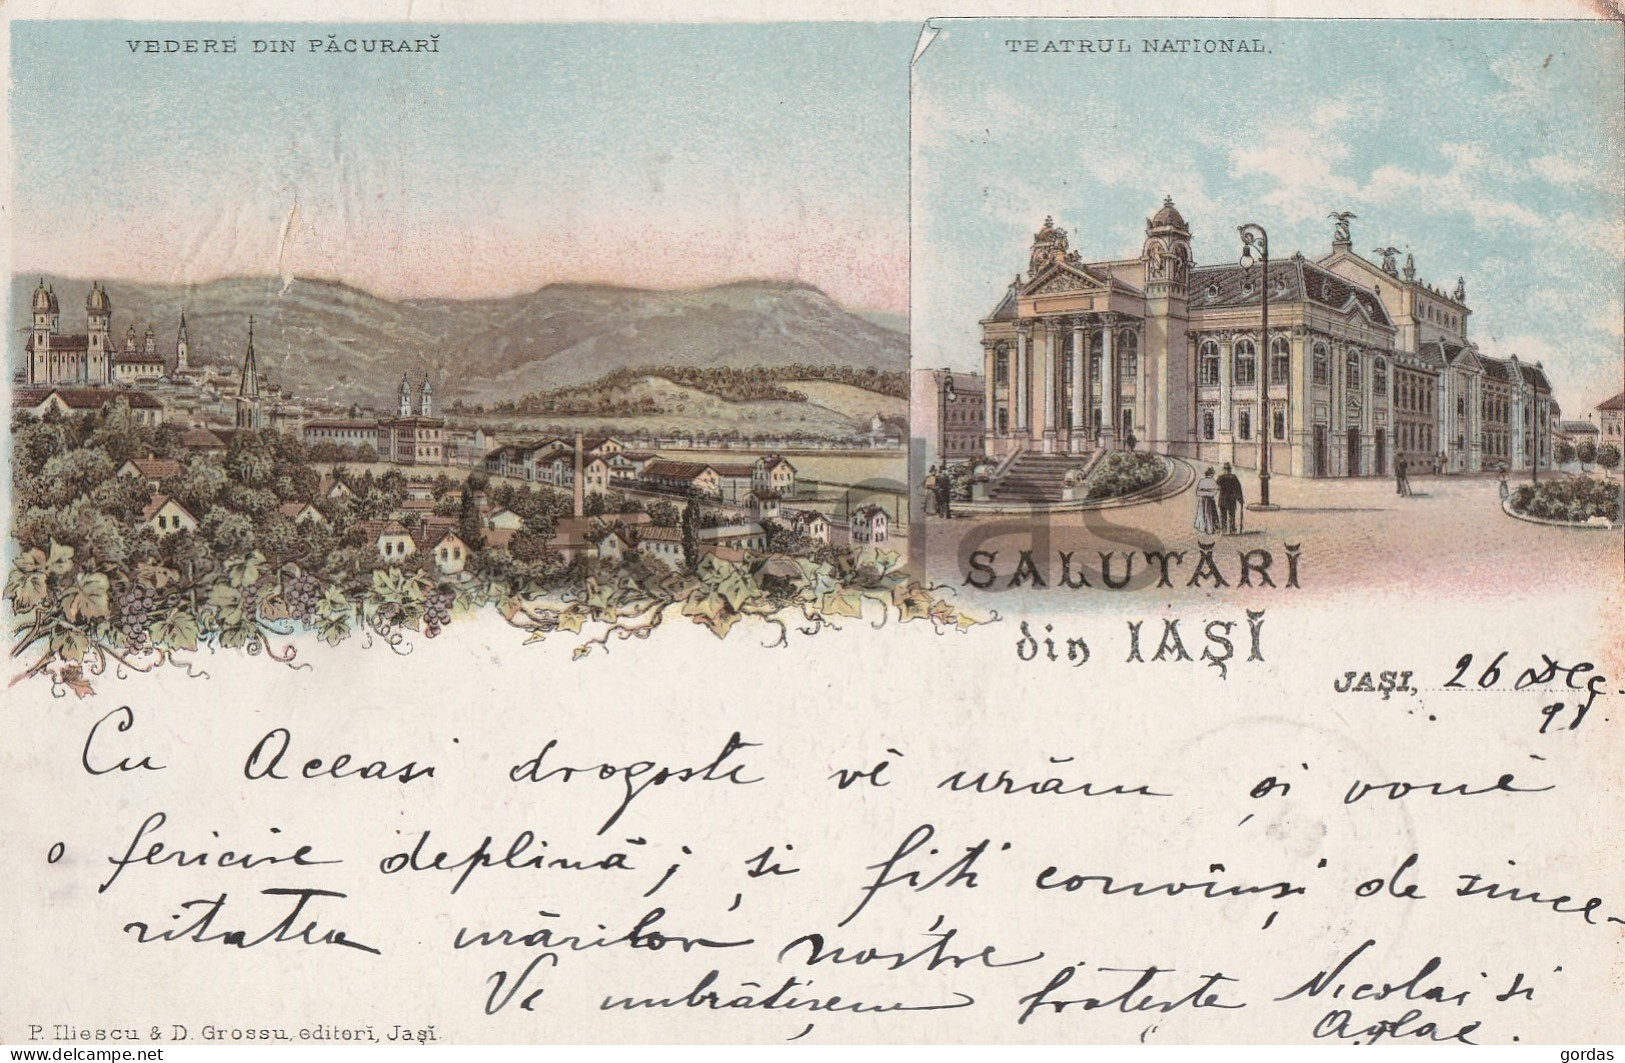 VEDERE DIN PĂCURARĬ
TEATRUL NATIONAL.
SALUTĂRĬ
din IAŞĬ
JAŞI, 26 Dec.
98
Cu Aceasi drogoste vĕ urăm şi vouĕ
o fericire deplină; şi fiţi convinşi de since-
ritatea urărilor nostre
Ve umbrăţişem frateşte Nicolai si
Aglae.
P. Iliescu & D. Grossu, editori, Jaşĭ.
delcampe.net
gordas